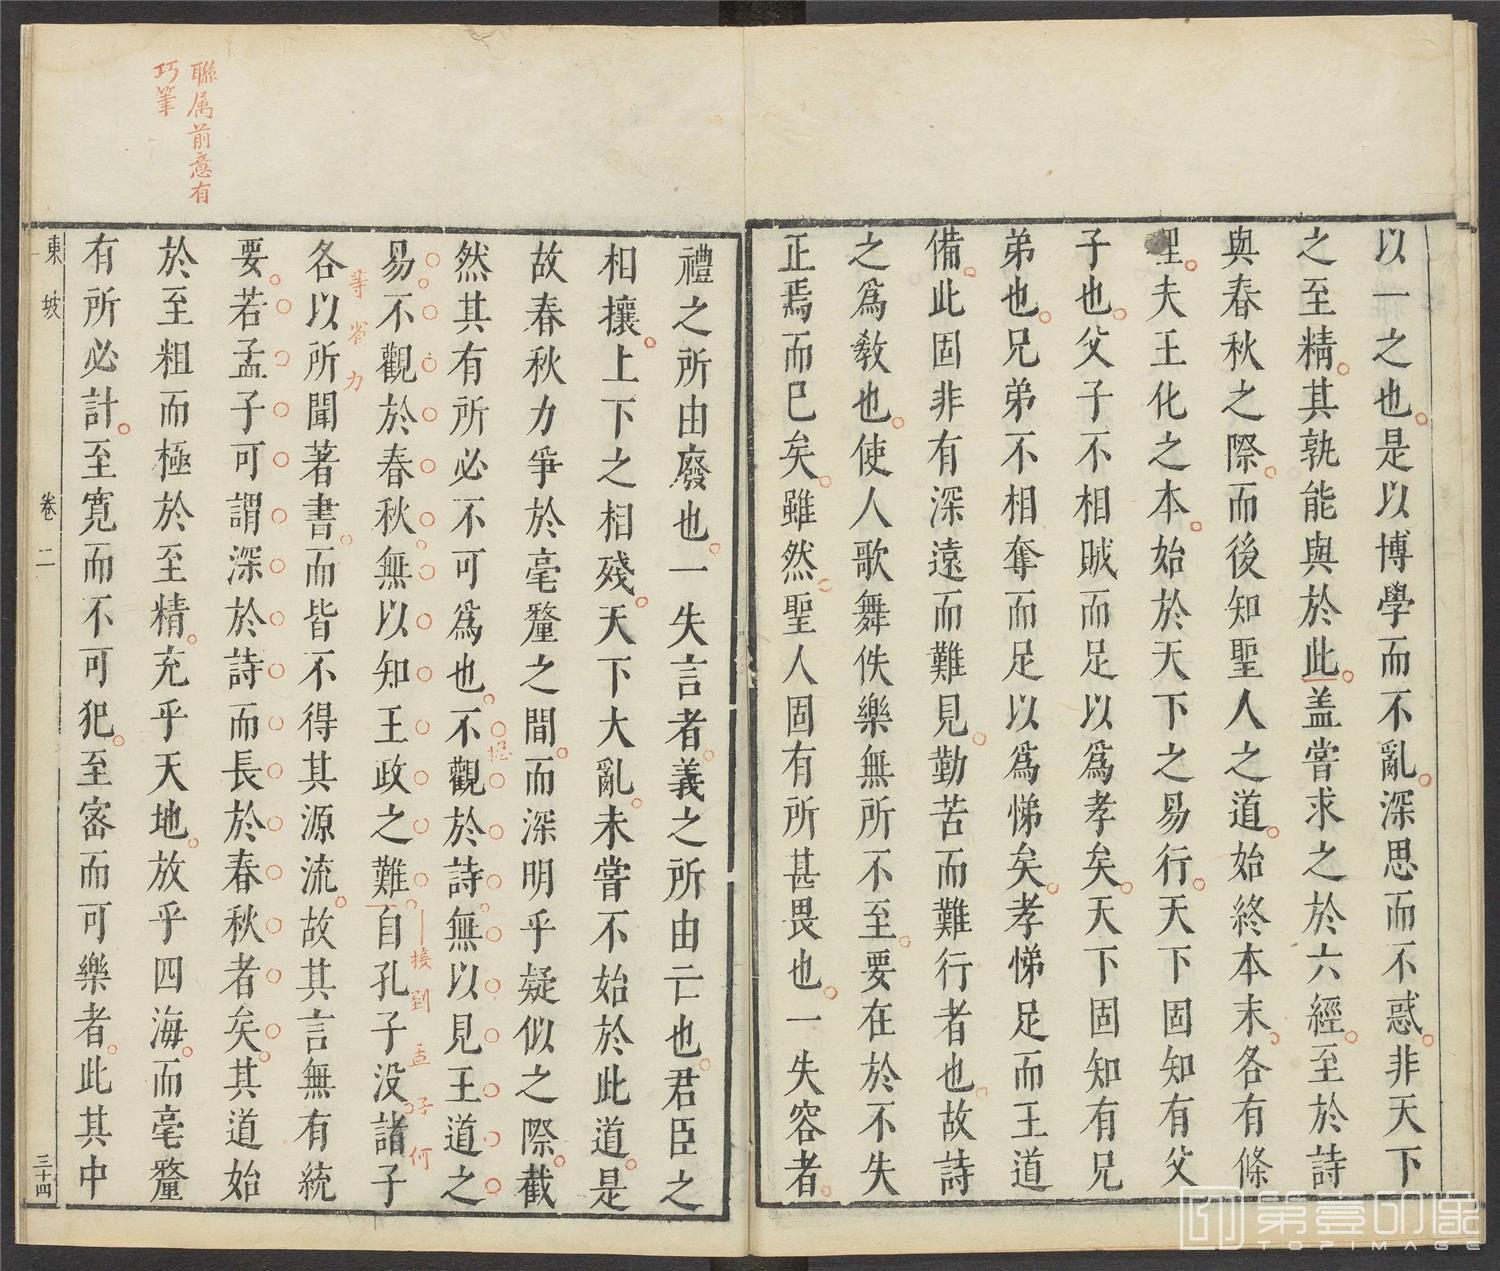 以一之也是以博學而不亂深思而不惑非天下
之至精其孰能與於此盖嘗求之於六經至於詩
與春秋之際而後知聖人之道始終本末各有條
理夫王化之本始於天下之易行天下固知有父
子也父子不相賊而足以爲孝矣天下固知有兄
弟也兄弟不相奪而足以爲悌矣孝悌足而王道
備此固非有深遠而難見勤苦而難行者也故詩
之爲敎也使人歌舞佚樂無所不至要在於不失
正焉而已矣雖然聖人固有所甚畏也一失容者
禮之所由廢也一失言者義之所由亡也君臣之
相攘上下之相殘天下大亂未嘗不始於此道是
故春秋力爭於毫釐之間而深明乎疑似之際截
然其有所必不可爲也不觀於詩無以見王道之
易不觀於春秋無以知王政之難自孔子没諸子
各以所聞著書而皆不得其源流故其言無有統
要若孟子可謂深於詩而長於春秋者矣其道始
於至粗而極於至精充乎天地放乎四海而毫釐
有所必計至寬而不可犯至密而可樂者此其中
東坡
卷二
三十四
聯属前意有
巧筆
接到孟子何
等省力
第壹印像
TOPIMAGE